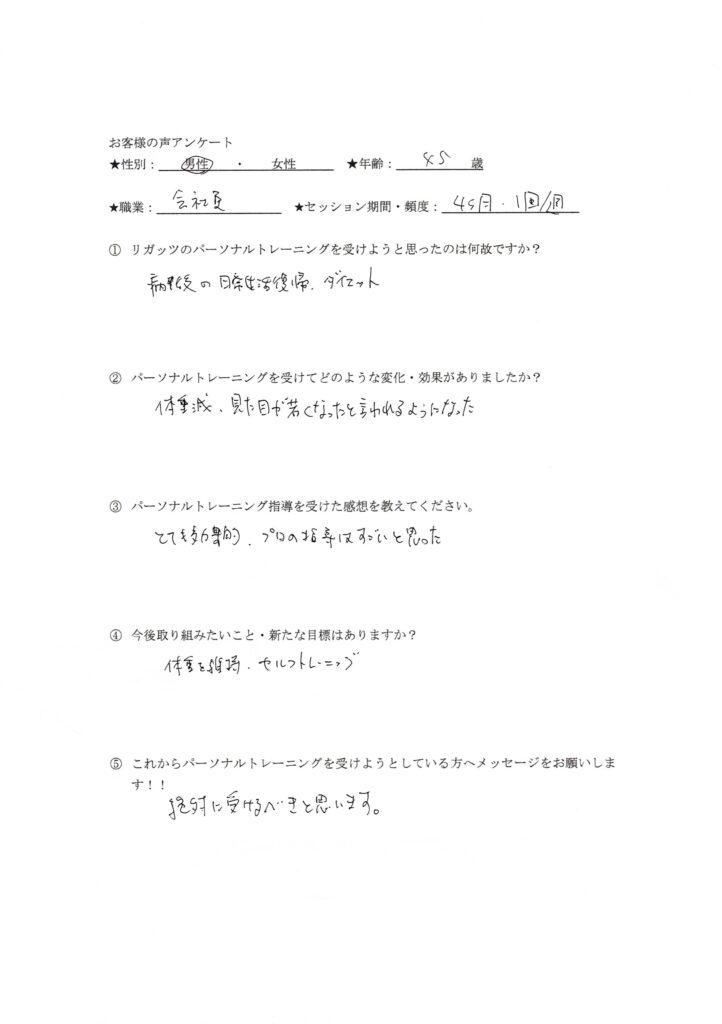 お客様の声アンケート
★性別：　男性　・　女性　★年齢：　45　歳
★職業：会社員　★セッション期間・頻度：4ヶ月・1回/週
① リガッツのパーソナルトレーニングを受けようと思ったのは何故ですか？
病後の日常生活復帰、ダイエット
② パーソナルトレーニングを受けてどのような変化・効果がありましたか？
体重減、見た目が若くなったと言われるようになった
③ パーソナルトレーニング指導を受けた感想を教えてください。
とても効果的、プロの指導はすごいと思った
④ 今後取り組みたいこと・新たな目標はありますか？
体重を維持、セルフトレーニング
⑤ これからパーソナルトレーニングを受けようとしている方へメッセージをお願いしま
す！！
絶対に受けるべきと思います。